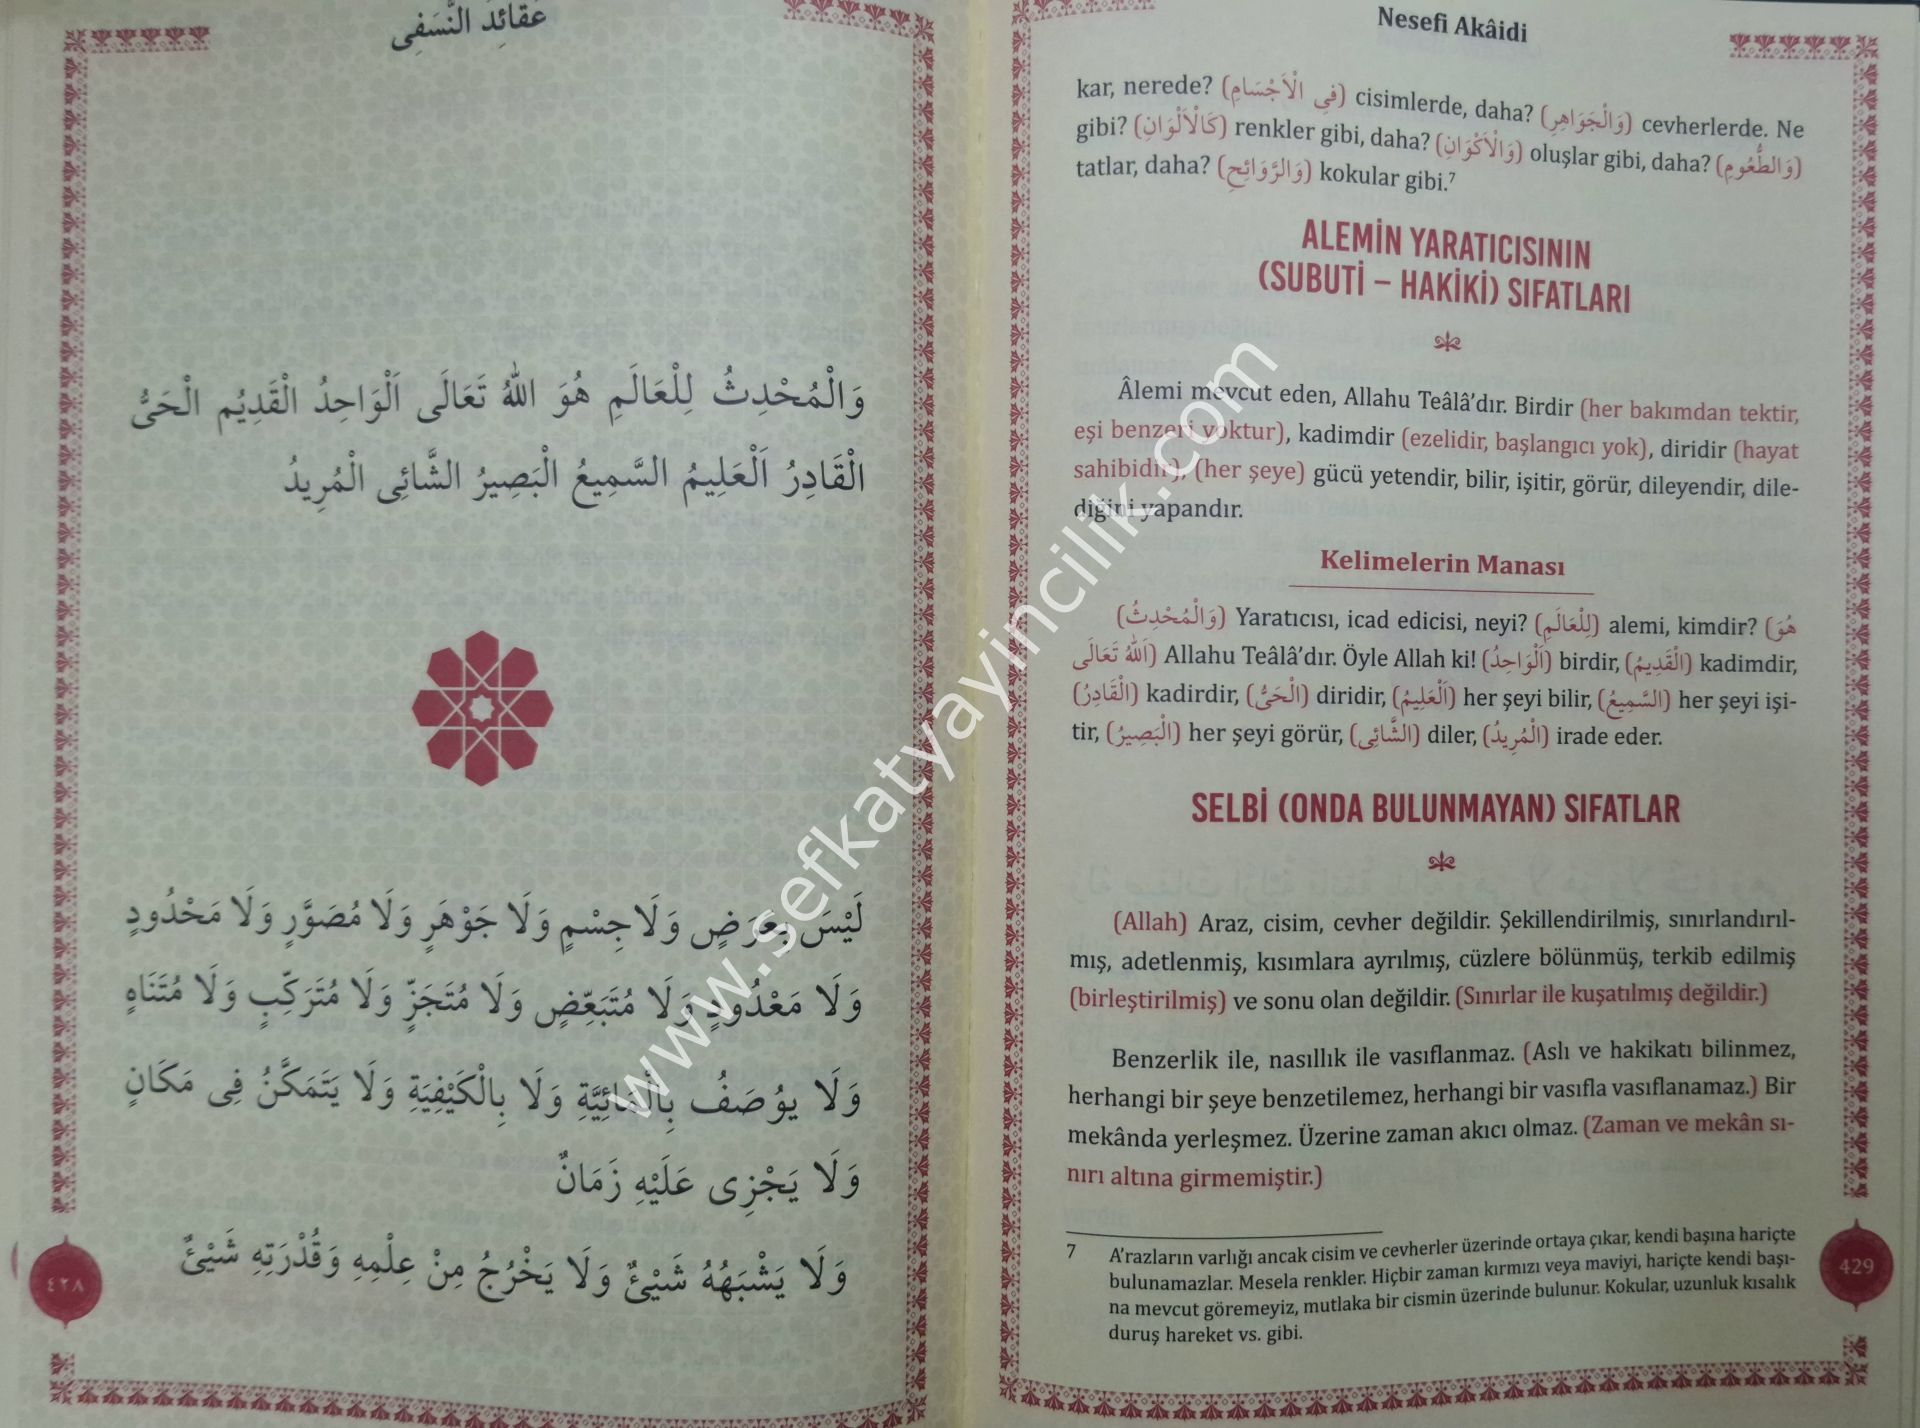 عَقَائِدُ النَّسَفِى
وَالْمُحْدِثُ لِلْعَالَمِ هُوَ اللّٰهُ تَعَالَى اَلْوَاحِدُ الْقَدِيُم الْحَىُّ
الْقَادِرُ اَلْعَلِيمُ السَّمِيعُ الْبَصِيرُ الشَّائِى الْمُرِيدُ
لَيْسَ بِعَرَضٍ وَلَا جِسْمٍ وَلَا جَوْهَرٍ وَلَا مُصَوَّرٍ وَلَا مَحْدُودٍ
وَلَا مَعْدُودٍ وَلَا مُتَبَعِّضٍ وَلَا مُتَجَزٍّ وَلَا مُتَرَكِّبٍ وَلَا مُتَنَاهٍ
وَلَا يوُصَفُ بِالْمَائِيَّةِ وَلَا بِالْكَيْفِيَةِ وَلَا يَتَمَكَّنُ فِى مَكَانٍ
وَلَا يَجْزِى عَلَيْهِ زَمَانٌ
وَلَا يَشْبَهُهُ شَيْئٌ وَلَا يَخْرُجُ مِنْ عِلْمِهِ وَقُدْرَتِهِ شَيْئٌ
٤٢٨
Nesefi Akâidi
kar, nerede? (فِى الْاَجْسَامِ) cisimlerde, daha? (وَالْجَوَاهِرِ) cevherlerde. Ne
gibi? (كَالْاَلْوَانِ) renkler gibi, daha? (وَالْاَكْوَانِ) oluşlar gibi, daha? (وَالطُّعُومِ)
tatlar, daha? (وَالرَّوَائِحِ) kokular gibi.⁷
ALEMİN YARATICISININ
(SUBUTİ – HAKİKİ) SIFATLARI
Âlemi mevcut eden, Allahu Teâlâ’dır. Birdir (her bakımdan tektir,
eşi benzeri yoktur), kadimdir (ezelidir, başlangıcı yok), diridir (hayat
sahibidir), (her şeye) gücü yetendir, bilir, işitir, görür, dileyendir, dile-
diğini yapandır.
Kelimelerin Manası
(وَالْمُحْدِثُ) Yaratıcısı, icad edicisi, neyi? (لِلْعَالَمِ) alemi, kimdir? (هُوَ
اَللّٰهُ تَعَالَى) Allahu Teâlâ’dır. Öyle Allah ki! (اَلْوَاحِدُ) birdir, (الْقَدِيمُ) kadimdir,
(الْقَادِرُ) kadirdir, (الْحَىُّ) diridir, (اَلْعَلِيمُ) her şeyi bilir, (السَّمِيعُ) her şeyi işi-
tir, (الْبَصِيرُ) her şeyi görür, (الشَّائِى) diler, (الْمُرِيدُ) irade eder.
SELBİ (ONDA BULUNMAYAN) SIFATLAR
(Allah) Araz, cisim, cevher değildir. Şekillendirilmiş, sınırlandırıl-
mış, adetlenmiş, kısımlara ayrılmış, cüzlere bölünmüş, terkib edilmiş
(birleştirilmiş) ve sonu olan değildir. (Sınırlar ile kuşatılmış değildir.)
Benzerlik ile, nasıllık ile vasıflanmaz. (Aslı ve hakikatı bilinmez,
herhangi bir şeye benzetilemez, herhangi bir vasıfla vasıflanamaz.) Bir
mekânda yerleşmez. Üzerine zaman akıcı olmaz. (Zaman ve mekân sı-
nırı altına girmemiştir.)
7 A’razların varlığı ancak cisim ve cevherler üzerinde ortaya çıkar, kendi başına hariçte
bulunamazlar. Mesela renkler. Hiçbir zaman kırmızı veya maviyi, hariçte kendi başı-
na mevcut göremeyiz, mutlaka bir cismin üzerinde bulunur. Kokular, uzunluk kısalık
duruş hareket vs. gibi.
429
www.sefkatyayincilik.com